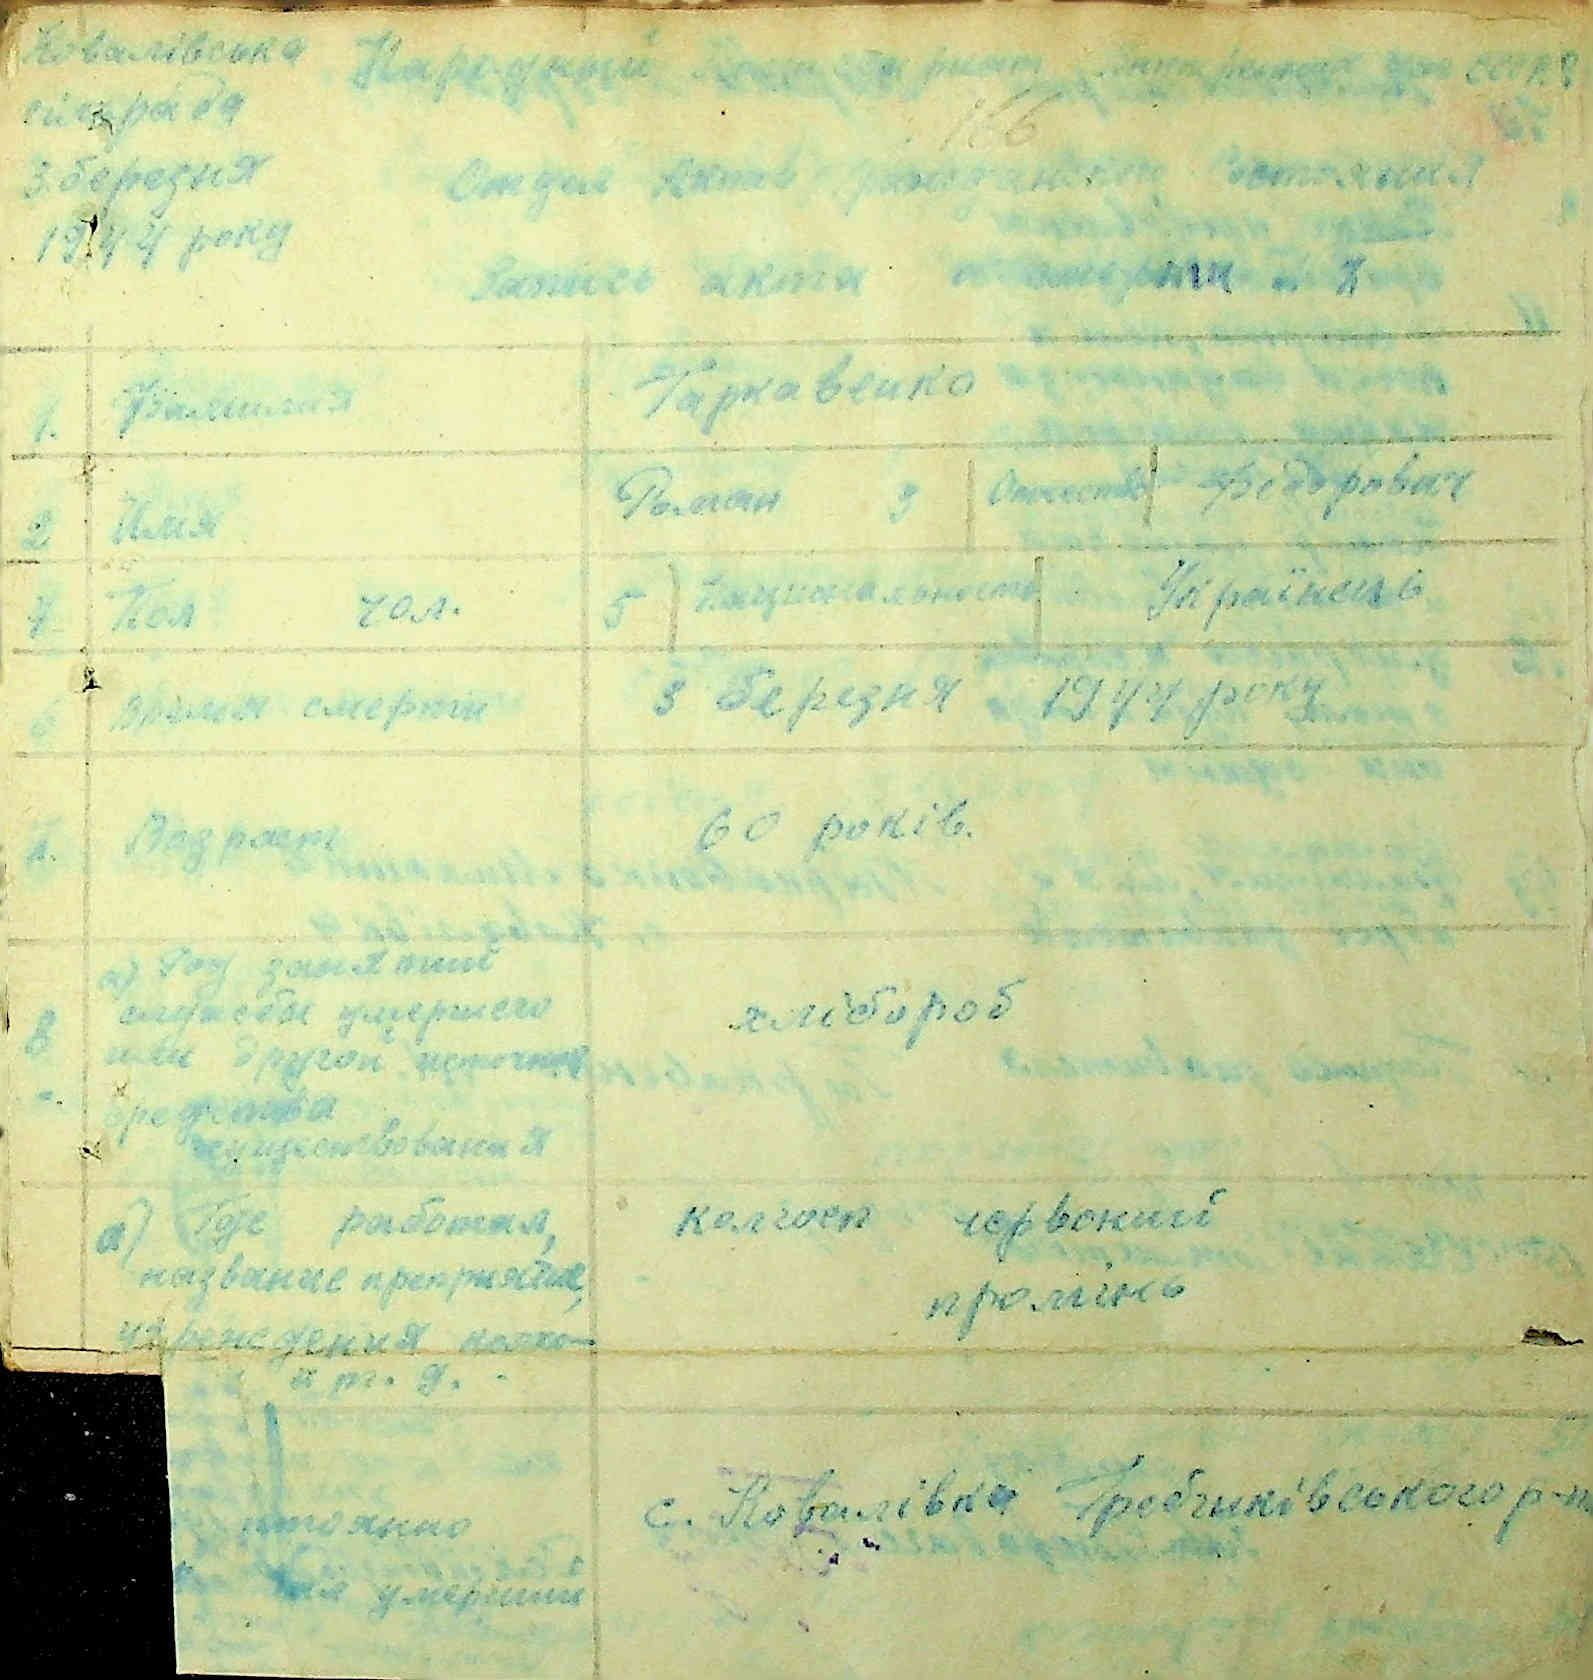 Ковалівська Народный
сільрада
166
3 березня Отдел Актов гражданского состояния
1944 року
Запись акта о смерти №
1. Фамилия Гаркавенко
2 Имя Роман 3 Отчество Федорович
4 Пол чол. 5 Национальность Українець
6 Время смерти 3 березня 1944 року
Возраст 60 років.
а) Род занятий
8 службы умершего хлібороб
или другой источник
средства
существования
а) Где работал, колгосп червоний
название преприятия, промінь
учреждения колхо-
и т. д.
с. Ковалівка Гребінківського р-н
постоянно
умерший